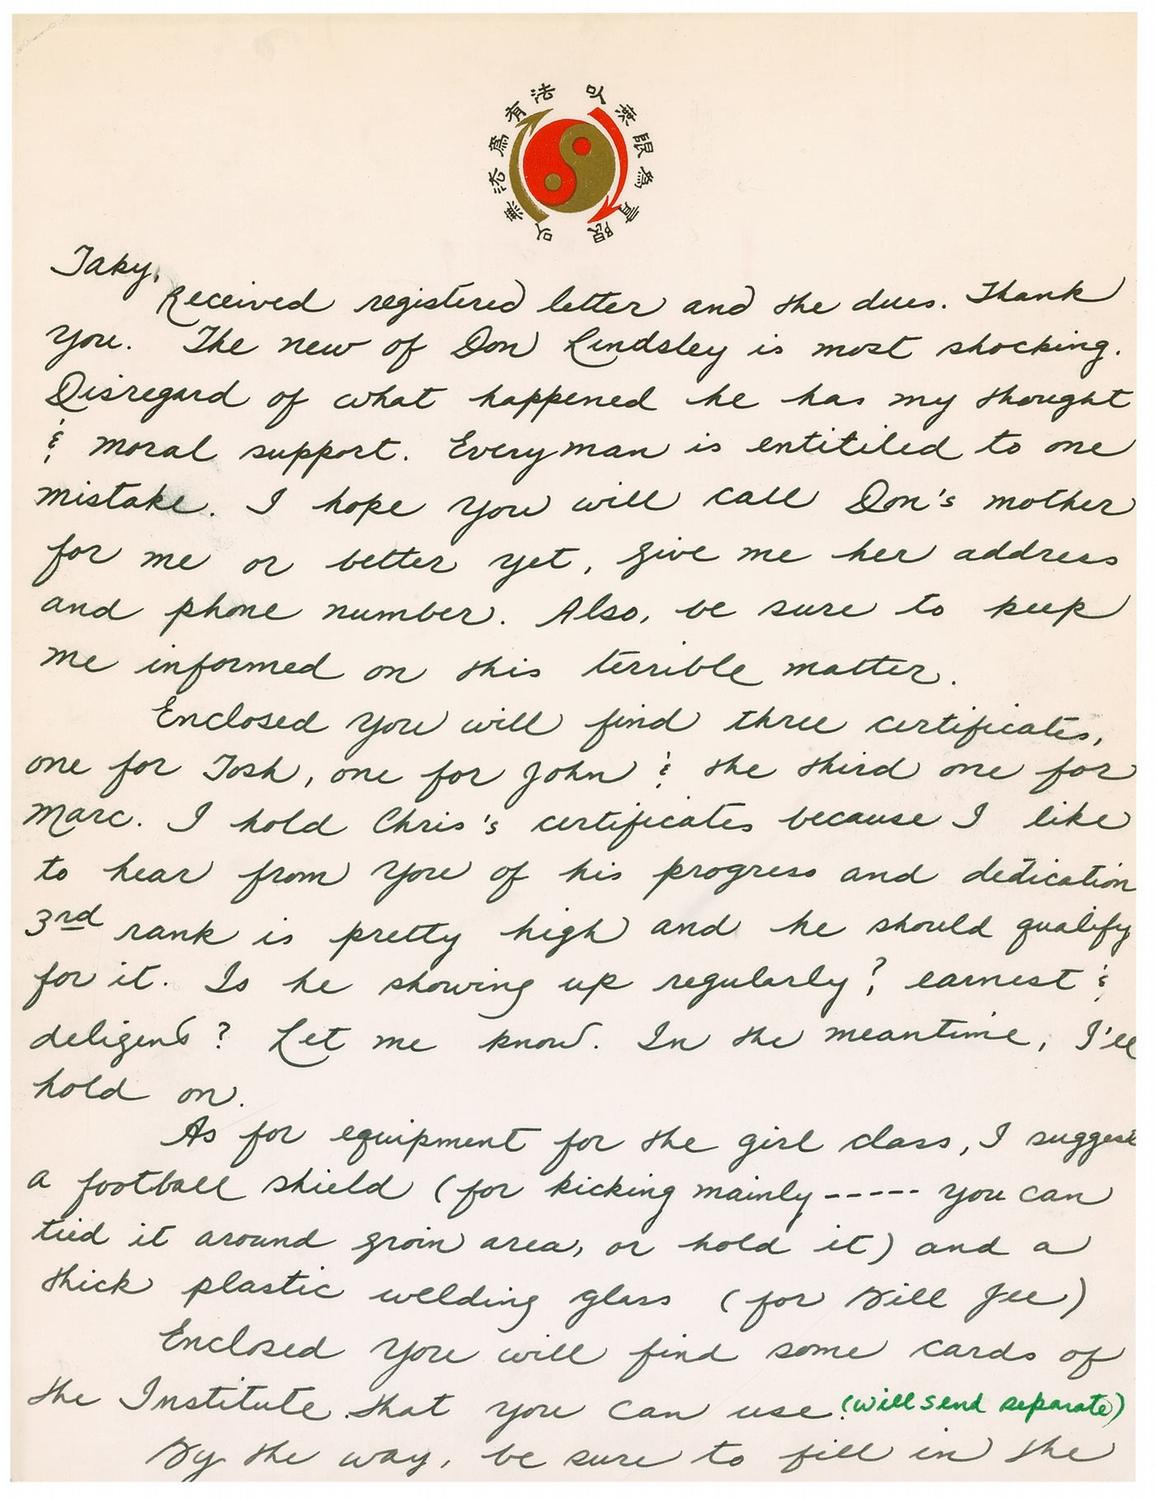 以無法為有法
以無限為有限
Taky,
Received registered letter and the dues. Thank
you. The new of Don Lindsley is most shocking.
Disregard of what happened he has my thought
& moral support. Everyman is entitiled to one
mistake. I hope you will call Don's mother
for me or better yet, give me her address
and phone number. Also, be sure to keep
me informed on this terrible matter.
Enclosed you will find three certificates,
one for Tosh, one for John & the third one for
Marc. I hold Chris's certificates because I like
to hear from you of his progress and dedication
3rd rank is pretty high and he should qualify
for it. Is he showing up regularly? earnest &
deligent? Let me know. In the meantime, I'll
hold on.
As for equipment for the girl class, I suggest
a football shield (for kicking mainly ----- you can
tied it around groin area, or hold it) and a
thick plastic welding glass (for Bill Jee)
Enclosed you will find some cards of
the Institute that you can use. (will send separate)
By the way, be sure to fill in the